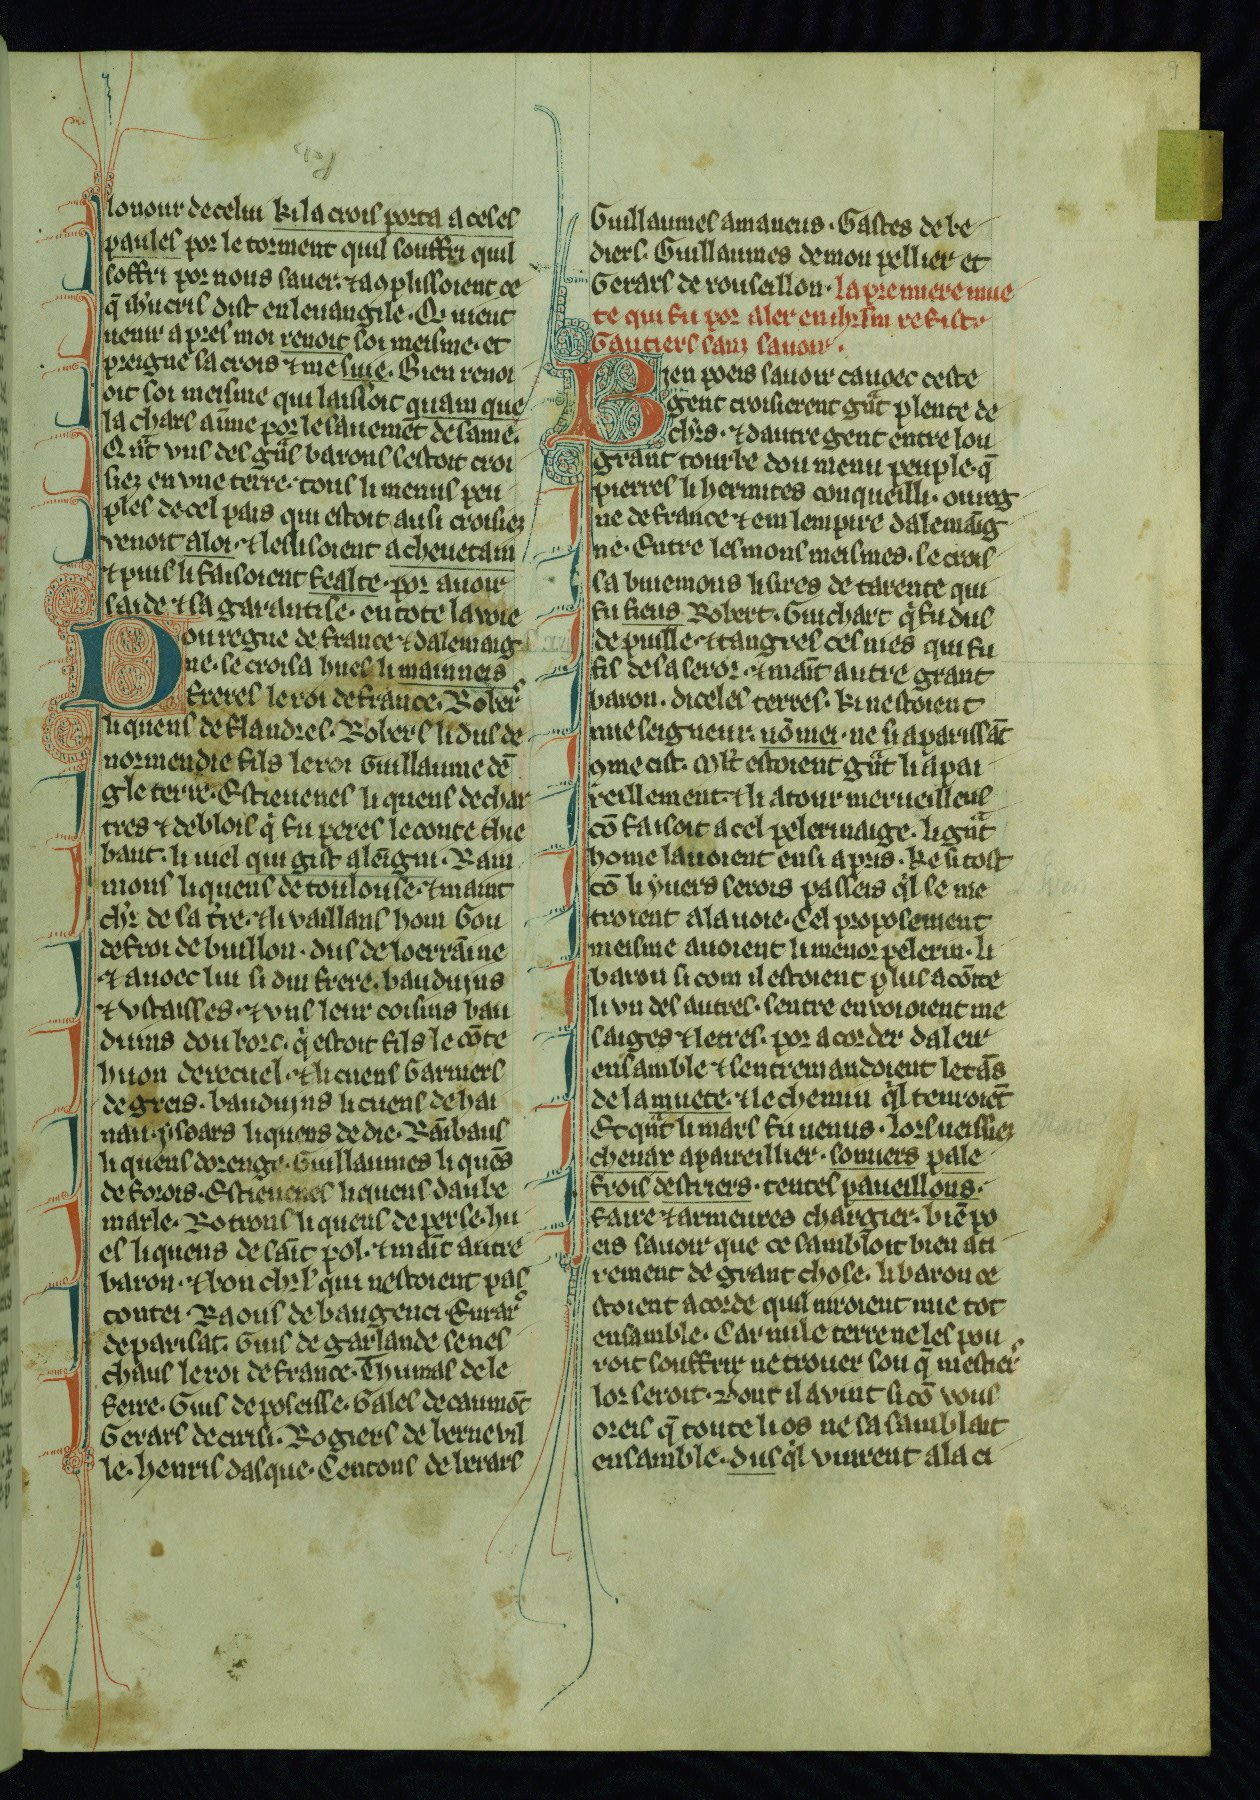 lonour de celui ki la crois porta a ces es
paules por le torment quil souffri quil
soffri por nous sauer. ⁊ aoplissoient ce
q̄ ih̓ucris dist en leuangile. Q̓ uient
uenir apres moi renoit soi meisme. et
preigne sa crois ⁊ me siue. Bien renoi
oit soi meisme qui laissoit quam que
la chars aı̄me por le sauemēt de same.
Q̓ ūt vns des gᵃns barons sestoit croi
siez en vne terre. tous li menus peu
ples de cel pais qui estoit ausi croisiez
venoit a loi. ⁊ lesisoient a cheuetain
⁊ puis li faisoient fealte. por auoir
saide ⁊ sa garantise. en tote la voie
Dou regne de france ⁊ dalemaig
ne. se croisa hues li mainneis
freres le roi de france. Robers
li quens de flandres. Robers li dus de
normendie fils le roi Guillaume dē
gleterre. Estieuenes li quens de char
tres ⁊ de blois q̓ fu peres le conte thie
baut. li uiel qui gist a leīgni. Rai
mons li quens de toulouse. ⁊ maint
ch̓r de sa t̓re. ⁊ li vaillans hom Gou
defroi de buillon. dus de loerrāine
⁊ auoec lui si dui frere. bauduins
⁊ vstasses. ⁊ vns leur coisins bau
duins dou borc. q̓ estoit fils le cōte
huon de recuel. ⁊ li cuens Garniers
de greis. bauduins li cuens de hai
nau. ysoars li quens de die. Rāibaus
li quens dorenge. Guillaumes li quēs
de forois. Estieuenes li quens daube
marle. Rotrous li quens de perse. hu
es li quens de saīt pol. ⁊ maīt autre
baron. ⁊ bon ch̓rs qui nestoient pas
contei. Raous de baugenci. Eurarˢ
de parisat. Guis de garlande senes
chaus le roi de france. Thumas de le
feire. Guis de poseisse. Gales de caumōt
Gerars de cirisi. Rogiers de berneuil
le. henris dasque. Centons de berars
Guillaumes amaneus. Gastes de be
diers. Guillaumes de mon pellier et
Gerars de rouseillon. la premiere mue
te qui fu por aler en ih̓rlm̄ re fist
Gautiers sanz sauoir.
Bien poeis sauoir cauoec ceste
gent croisierent gᵃnt plente de
ch̓rs. ⁊ dautre gent entre lou
grant tourbe dou menu peuple. q̄
pierres li hermites conqueilli. ou reg
ne de france ⁊ em lempire dalemāig
ne. Entre les mons meismes. se crois
sa buiemons li sires de tarente qui
fu fieus Robert. Guichart q̓ fu dus
de puille. ⁊ tangres ces nies qui fu
fils de sa seror. ⁊ maīt autre grant
baron. diceles terres. ki nestoient
mie seigneur. nō mei. ne si aparissāt
9me cist. Ml̓t estoient gᵃnt li apai
reillement. ⁊ li atour merueilleus
cō faisoit a cel pelerinaige. li gᵃnt
home lauoient ensi apris. Ke si tost
cō li yuers serois passeis q̓l se me
troient a la uoie. Cel proposement
meisme auoient li menor pelerin. li
baron si com il estoient plus acōte
li vn des autres. sentre enuoioient me
saiges ⁊ letres. por acorder daleir
ensamble ⁊ sentremandoient le tās
de la muete. ⁊ le chemin q̓l tenroiēt
Et qᵃnt li mars fu uenus. lors ueissiez
cheuax apareillier. somiers pale
frois destriers. tentes paueillons.
faire ⁊ armeures chargier. biē po
eis sauoir que ce sambloit bien ati
rement de grant chose. li baron ce
stoient acorde quil niroient mie tot
ensamble. Car nule terre ne les pou
roit souffrir ne trouer sou q̄ mestierˢ
lor seroit. Dont il auint si cō vous
oreis q̄ toute li os ne sa samblait
ensamble. dus q̓l vinrent a la ci